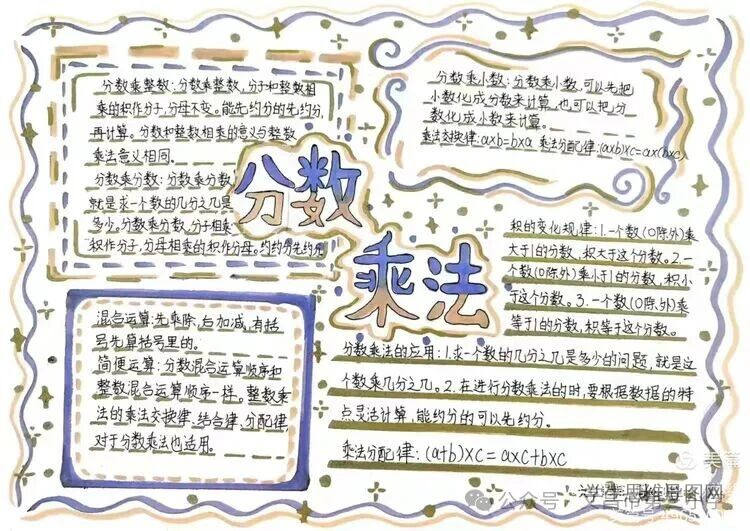 分数乘整数:分数乘整数,分子和整数相
乘的积作分子,分母不变。能先约分的先约分,
再计算。分数和整数相乘的意义与整数
乘法意义相同。
分数乘分数:分数乘分数
就是求一个数的几分之几是
多少。分数乘分数,分子相乘
积作分子,分母相乘的积作分母。约约分先约分
分数
乘法
分数乘小数:分数乘小数,可以先把
小数化成分数来计算,也可以把分
数化成小数来计算。
乘法交换律:a×b=b×a 乘法分配律:(a×b)×c=a×(b×c)
积的变化规律:1.一个数(0除外)乘
大于1的分数,积大于这个分数。2.一
个数(0除外)乘小于1的分数,积小
于这个分数。3.一个数(0除外)乘
等于1的分数,积等于这个分数。
混合运算:先乘除,后加减,有括
号先算括号里的。
简便运算:分数混合运算顺序和
整数混合运算顺序一样。整数乘
法的乘法交换律、结合律、分配律,
对于分数乘法也适用。
分数乘法的应用:1.求一个数的几分之几是多少的问题,就是这
个数乘几分之几。2.在进行分数乘法的时,要根据数据的特
点灵活计算,能约分的可以先约分。
乘法分配律:(a+b)×c=a×c+b×c
公众号
思维导图网